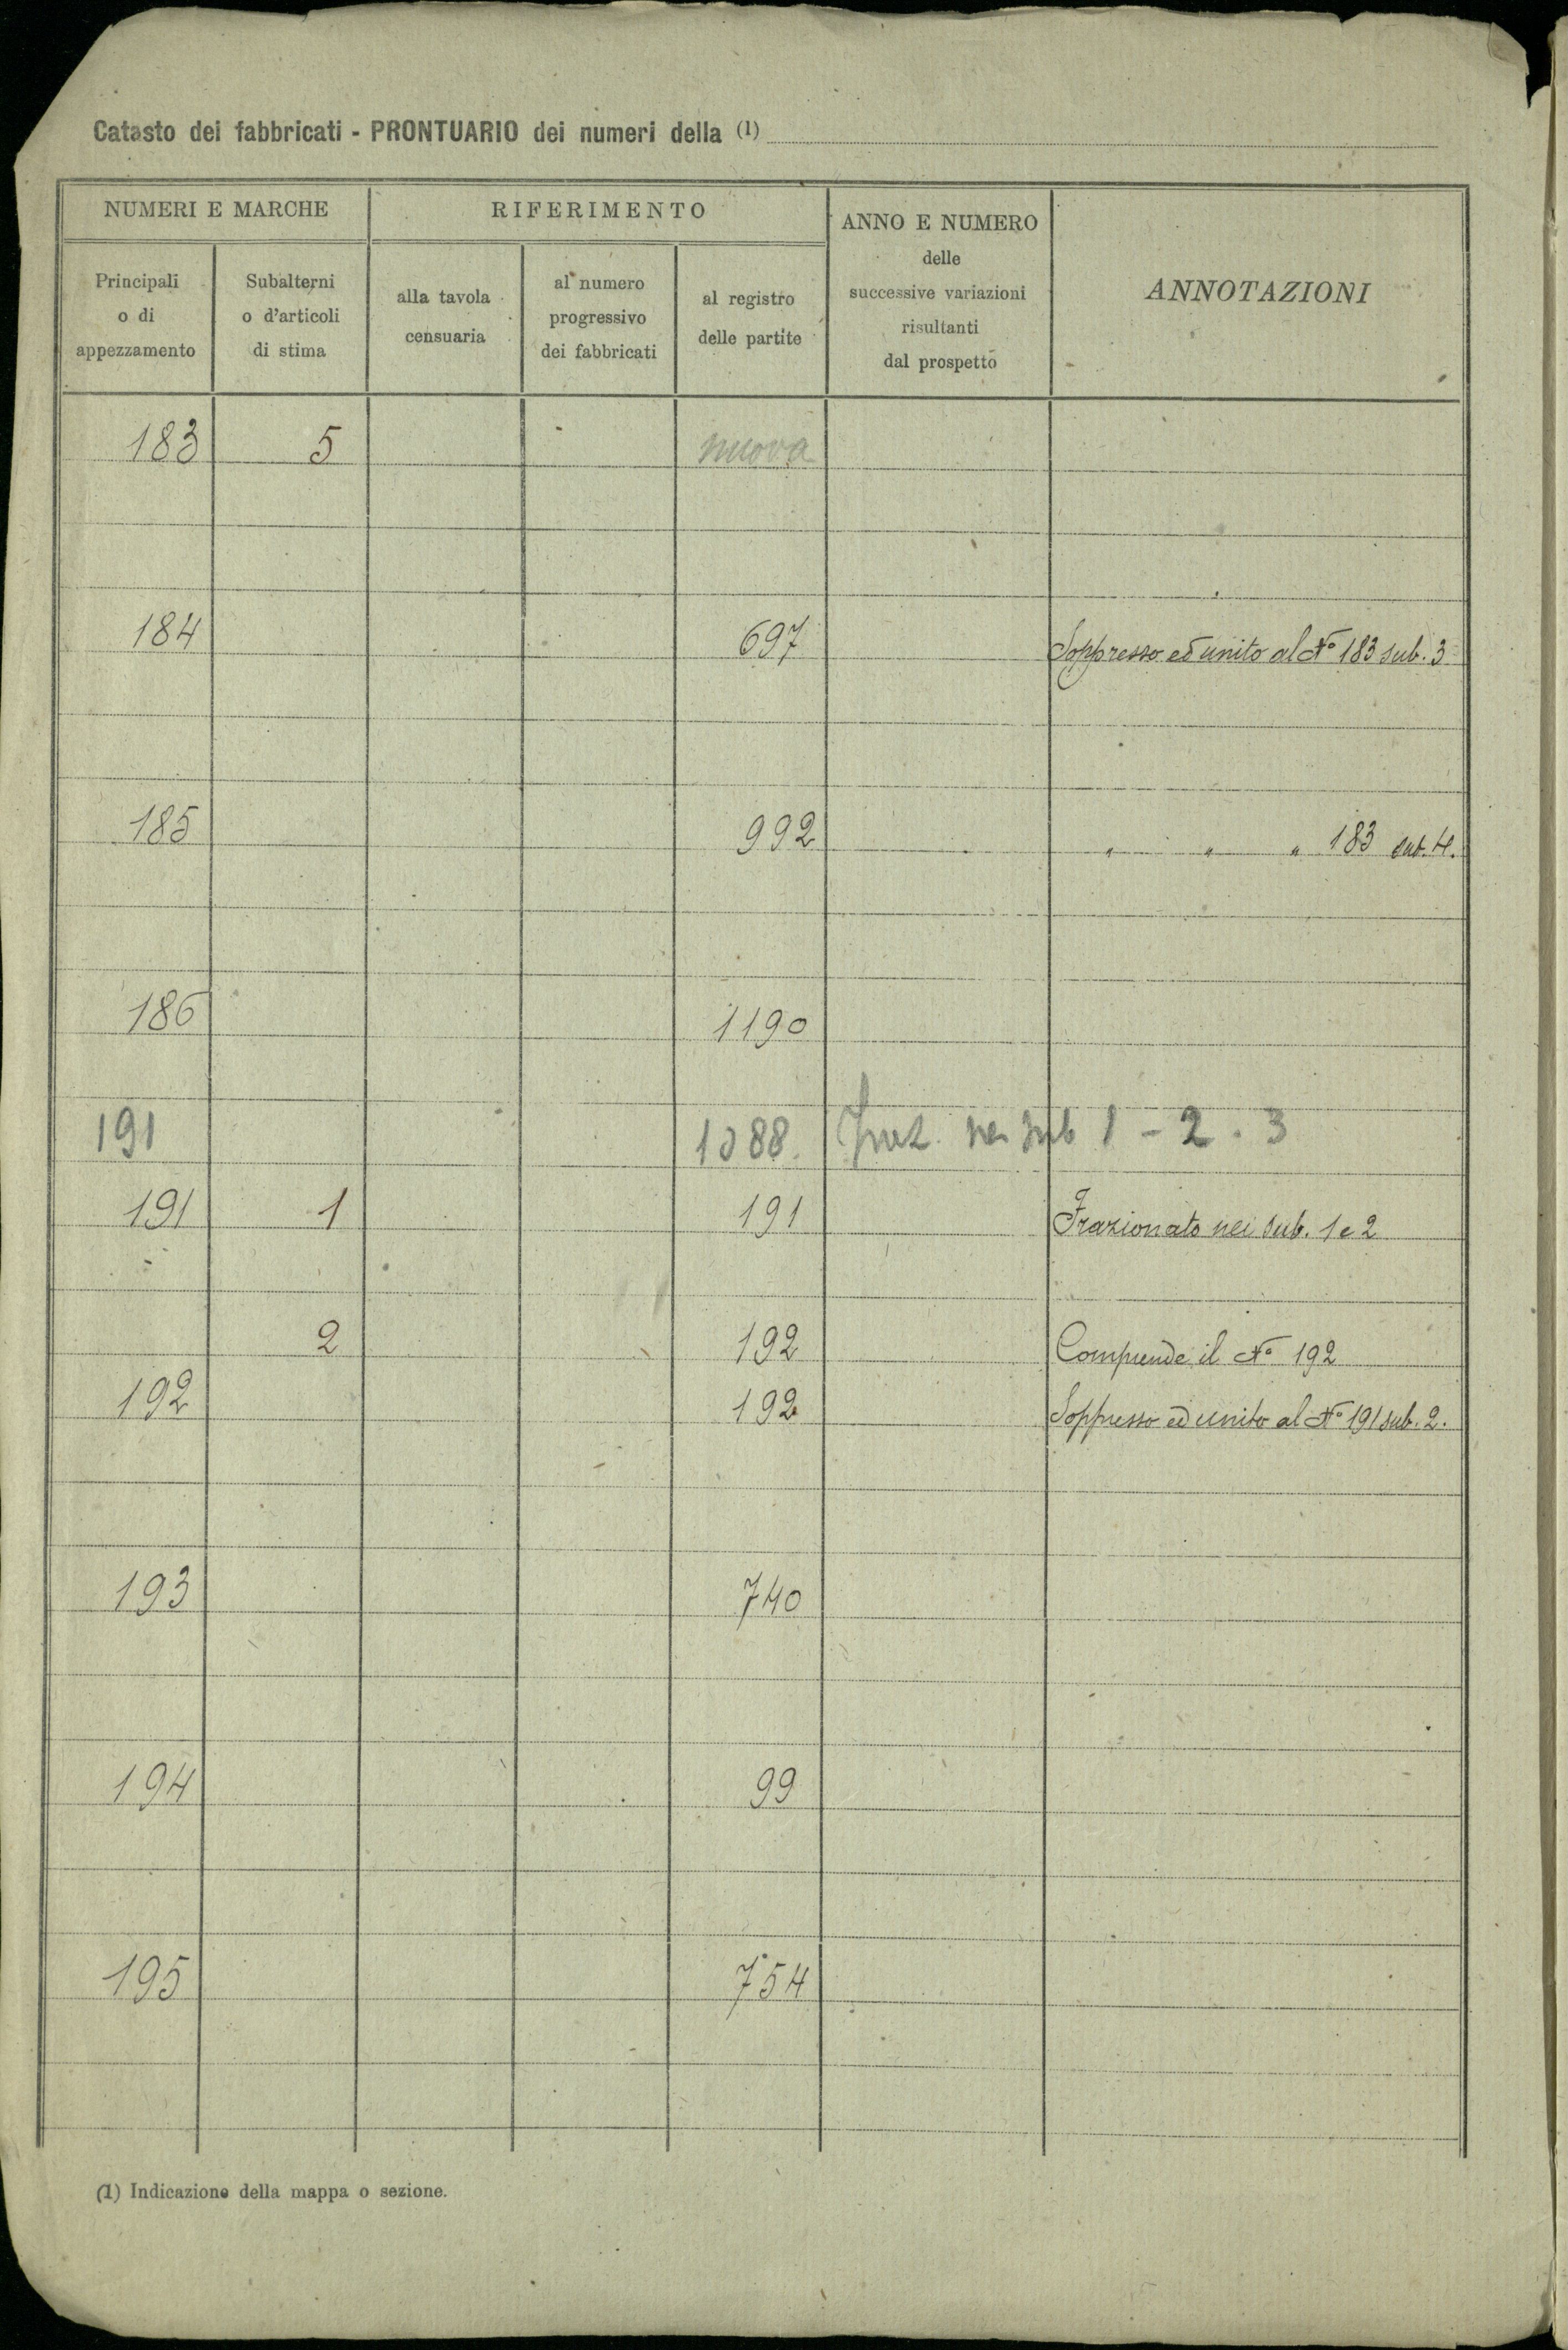 Catasto dei fabbricati - PRONTUARIO dei numeri della (1)
NUMERI E MARCHE
RIFERIMENTO
ANNO E NUMERO
delle
successive variazioni
risultanti
dal prospetto
ANNOTAZIONI
Principali
o di
appezzamento
Subalterni
o d'articoli
di stima
alla tavola
censuaria
al numero
progressivo
dei fabbricati
al registro
delle partite
183 5 nuova
184 697 Soppresso ed unito al N° 183 sub. 3
185 992 " " " 183 sub. 4.
186 1190
191 1088. Fraz. nei sub 1 - 2 . 3
191 1 191 Frazionato nei sub. 1 e 2
2 192 Comprende il N° 192
192 192 Soppresso ed unito al N° 191 sub. 2.
193 740
194 99
195 754
(1) Indicazione della mappa o sezione.